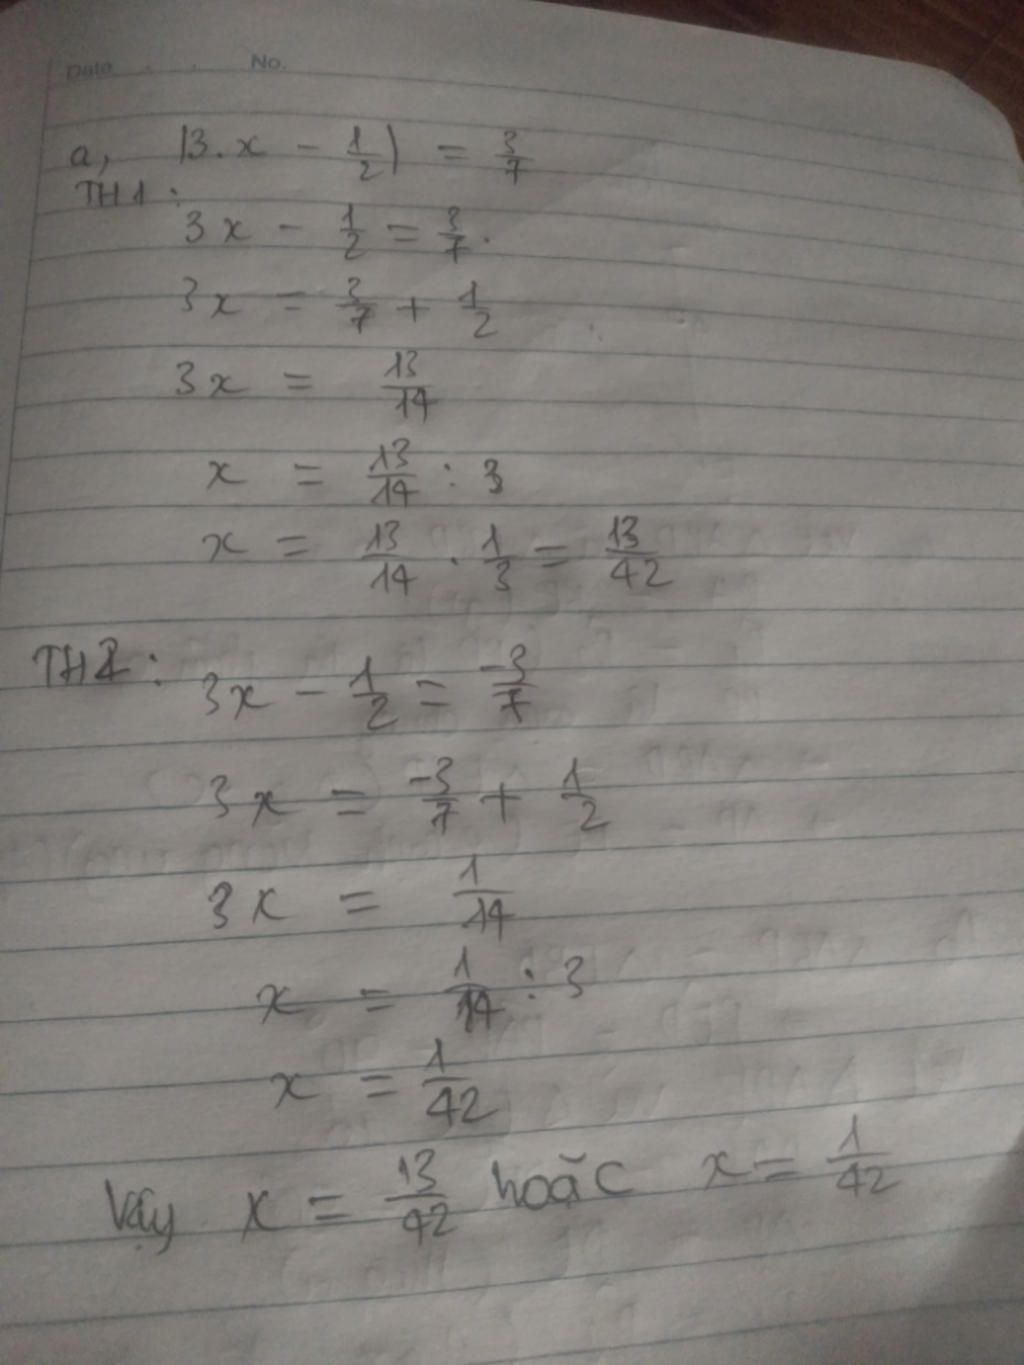 Date . . No.
a, |3.x - 1/2| = 3/7
TH1:
3x - 1/2 = 3/7.
3x = 3/7 + 1/2
3x = 13/14
x = 13/14 : 3
x = 13/14 . 1/3 = 13/42
TH2: 3x - 1/2 = -3/7
3x = -3/7 + 1/2
3x = 1/14
x = 1/14 : 3
x = 1/42
Vậy x = 13/42 hoặc x = 1/42